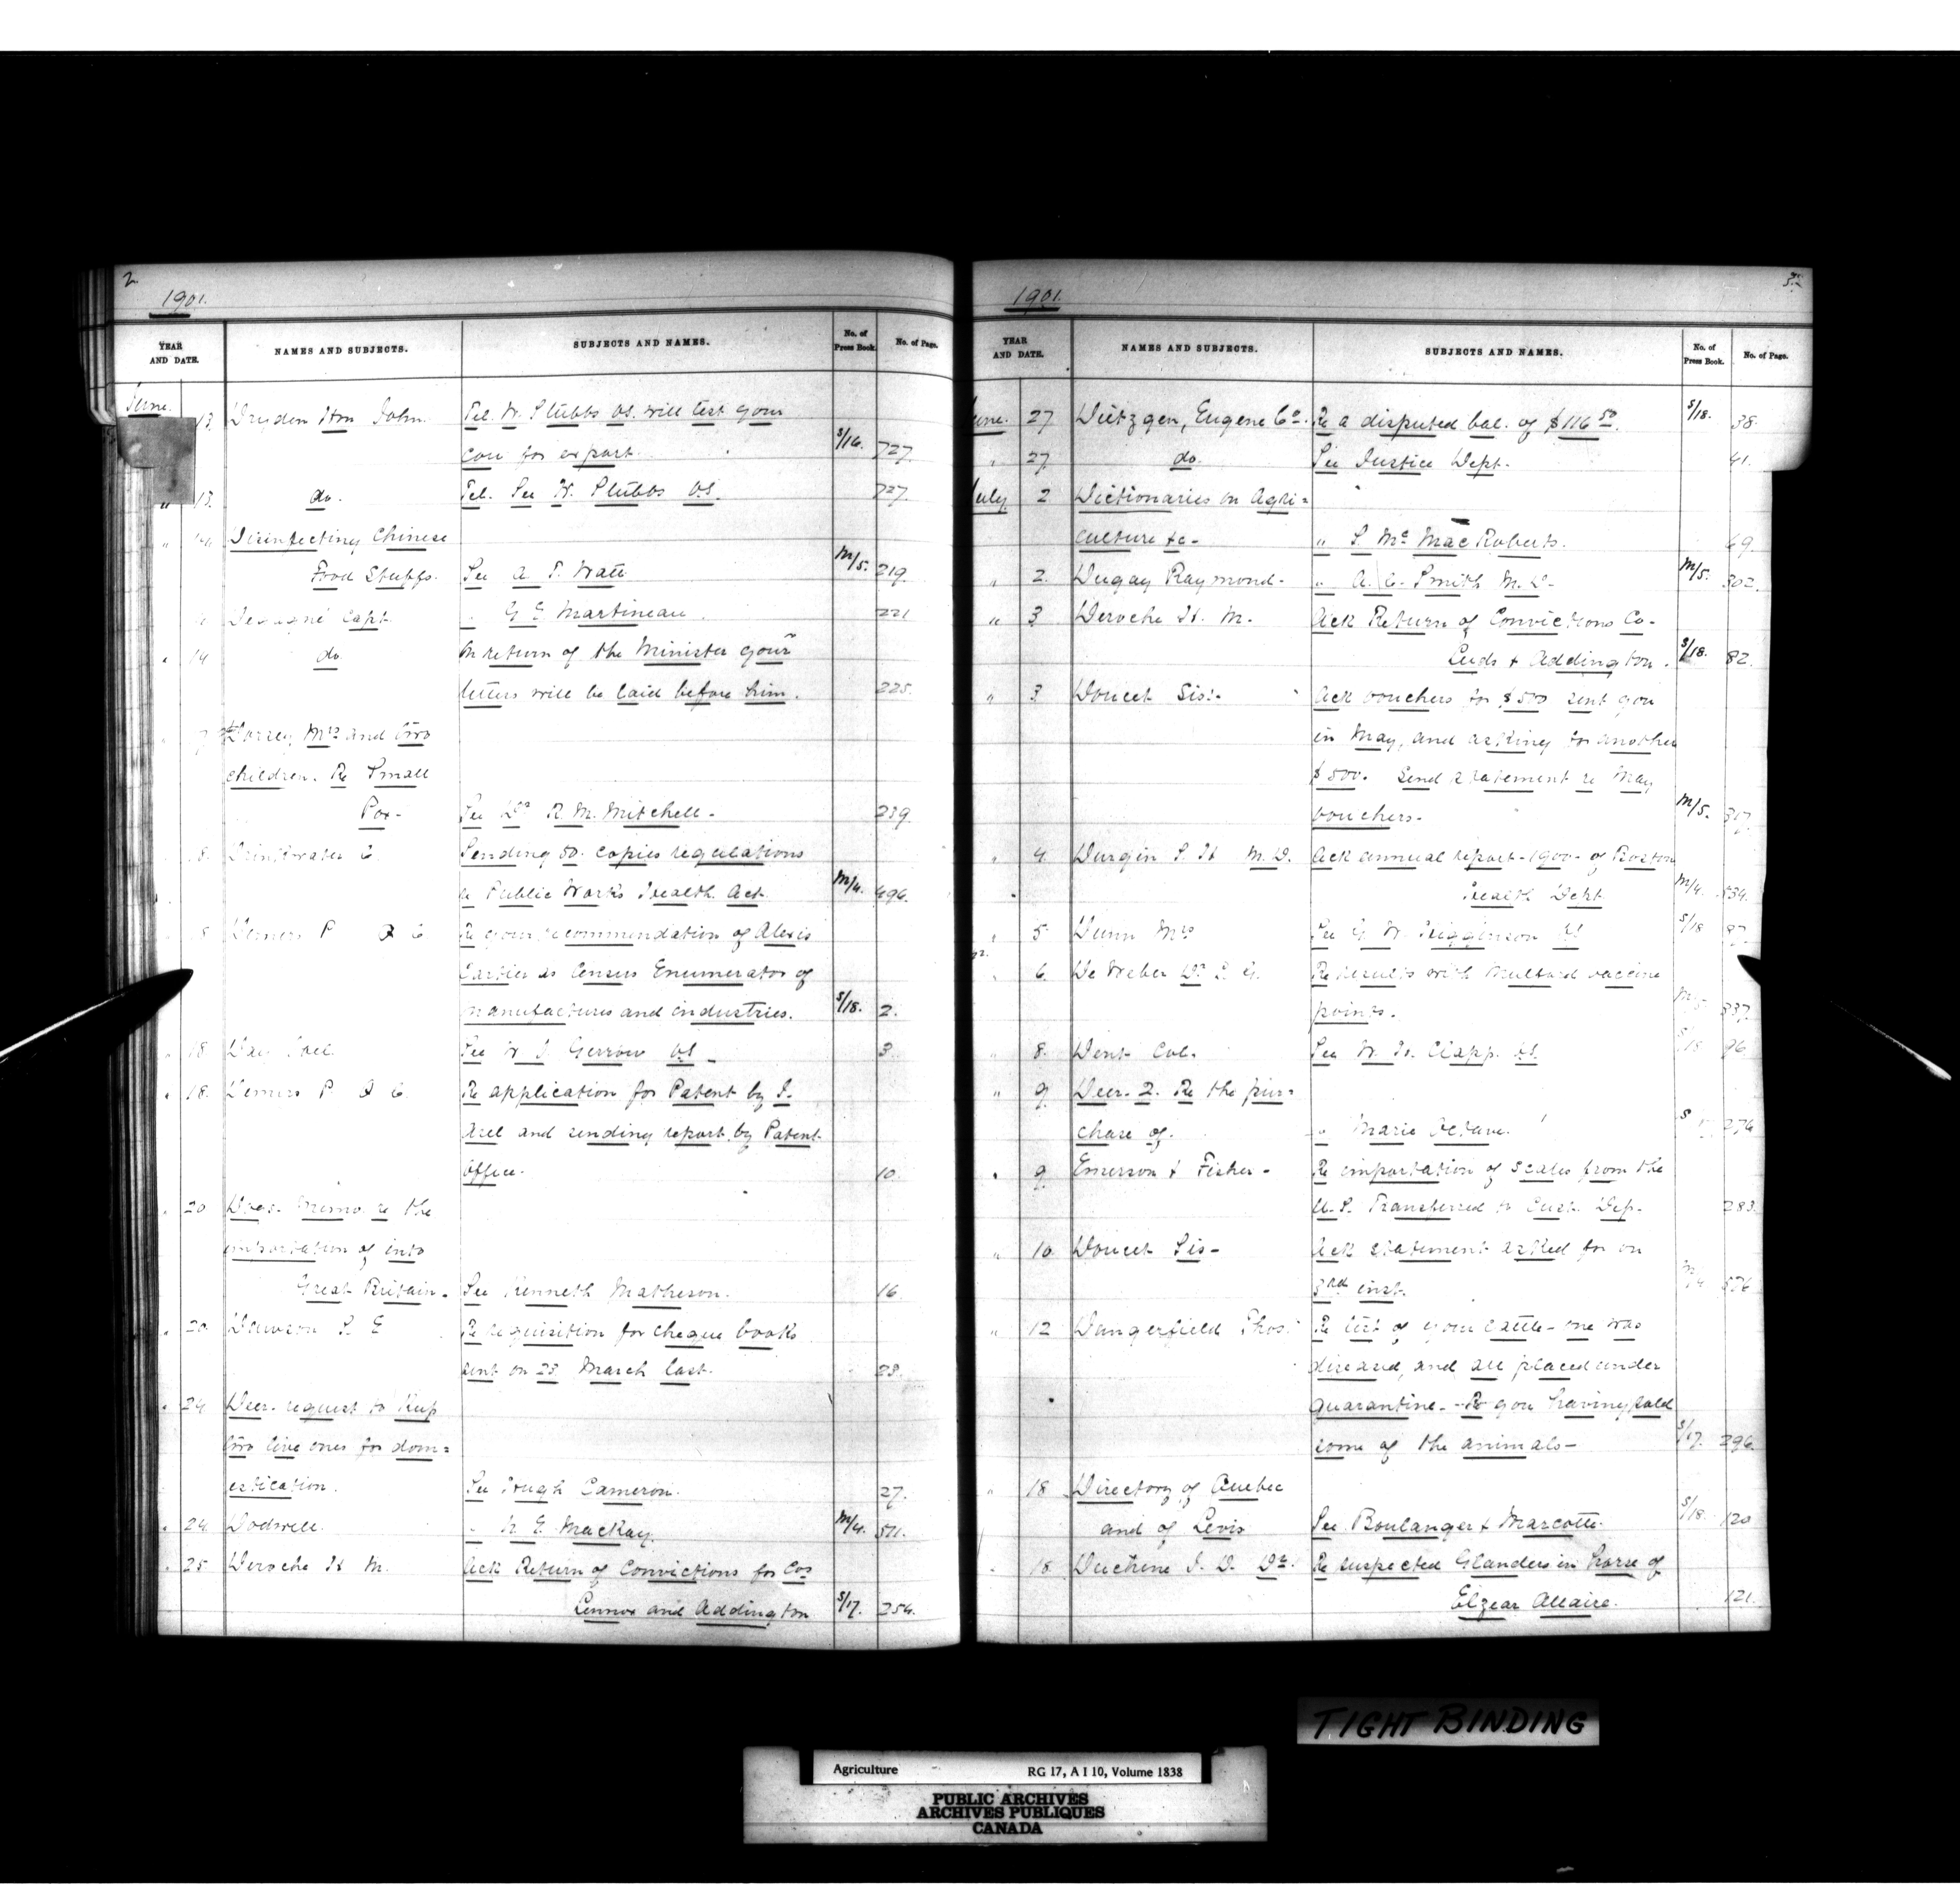 2
1901.
YEAR AND DATE. NAMES AND SUBJECTS. SUBJECTS AND NAMES. No. of Press Book. No. of Page.
June. 13. Dryden Hon John. Tel. W. Stubbs V.S. will test your
cow for export. S/16. 727.
" 13. do. Tel. See W. Stubbs V.S. 727
" 14. Disinfecting Chinese
Food Stuffs. See A. T. Watt M/5. 219.
" Capt. " G E Martineau. 221
" 14 do In return of the Minister your
letters will be laid before him. 225.
Mrs and two
children. Re Small
Pox - See Dr R. M. Mitchell - 239.
Drinkwater C. Sending 50. copies regulations
re Public Works Health Act. M/4. 496.
Demers P A C Re your recommendation of Alexis
Cartier as Census Enumerator of
manufactures and industries. S/18. 2.
" 18 Day See W J V.S. - 3
" 18. Demers P A C. Re application for Patent by J.
and sending report by Patent
Office. 10.
" 20 Dogs. Memo re the
importation of into
Great Britain. See Kenneth Matheson. 16
" 20. Dawson S E Re requisition for cheque books
sent on 23 March last. 23.
" 24 Deer. request to keep
two live ones for dom=
estication. See Hugh Cameron. 27.
" 24. Dodwell. " N E MacKay. M/4. 511.
" 25 Deroche H M. Ack Return of Convictions for Cos
Lennox and Addington S/17. 254.
1901.
YEAR AND DATE. NAMES AND SUBJECTS. SUBJECTS AND NAMES. No. of Press Book. No. of Page.
June. 27 Dietzgen, Eugene Co. Re a disputed bal. of $116 50. S/18. 38.
" 27. do. See Justice Dept. 41.
July 2 Dictionaries on Agri=
culture &c - " S. Mc MacRoberts. 69.
" 2. Dugay Raymond - " A. C. Smith M. D - M/5. 302.
" 3 Deroche H. M. Ack Return of Convictions Co -
& Addington. S/18. 82.
" 3 Doucet Sis: - Ack vouchers for $500 sent you
in May, and asking for another
$500. Send statement re May
vouchers - M/5. 317.
" 4. Durgin S. H M. D. Ack annual report - 1900 - of Boston
Health Dept M/4. 534.
" 5 Dunn Mrs See G. W. Higginson VS S/18 87.
" 6. De Weber Dr Re results with Mulford vaccine
points. M/5 337.
" 8. Dent Col. See W. H. Clapp. VS S/18 96
" 9. Deer. 2. Re the pur=
chase of. " Marie Octave. S 276
" 9. Emerson & Fisher - Re importation of scales from the
U.S. Transferred to Cust. Dep. 283.
" 10 Doucet Sis - Ack statement asked for on
3rd inst. M/4 576
" 12 Dangerfield Thos. Re test of your cattle - one was
diseased, and all placed under
quarantine - Re you having sold
some of the animals - S/17. 296.
" 18 Directory of Quebec
and of Levis See Boulanger & Marcotte. S/18. 120
" 18 Duchene J. D. Dr. Re suspected Glanders in horse of
Elzear Allaire. 121.
TIGHT BINDING
Agriculture RG 17, A I 10, Volume 1838
PUBLIC ARCHIVES
ARCHIVES PUBLIQUES
CANADA